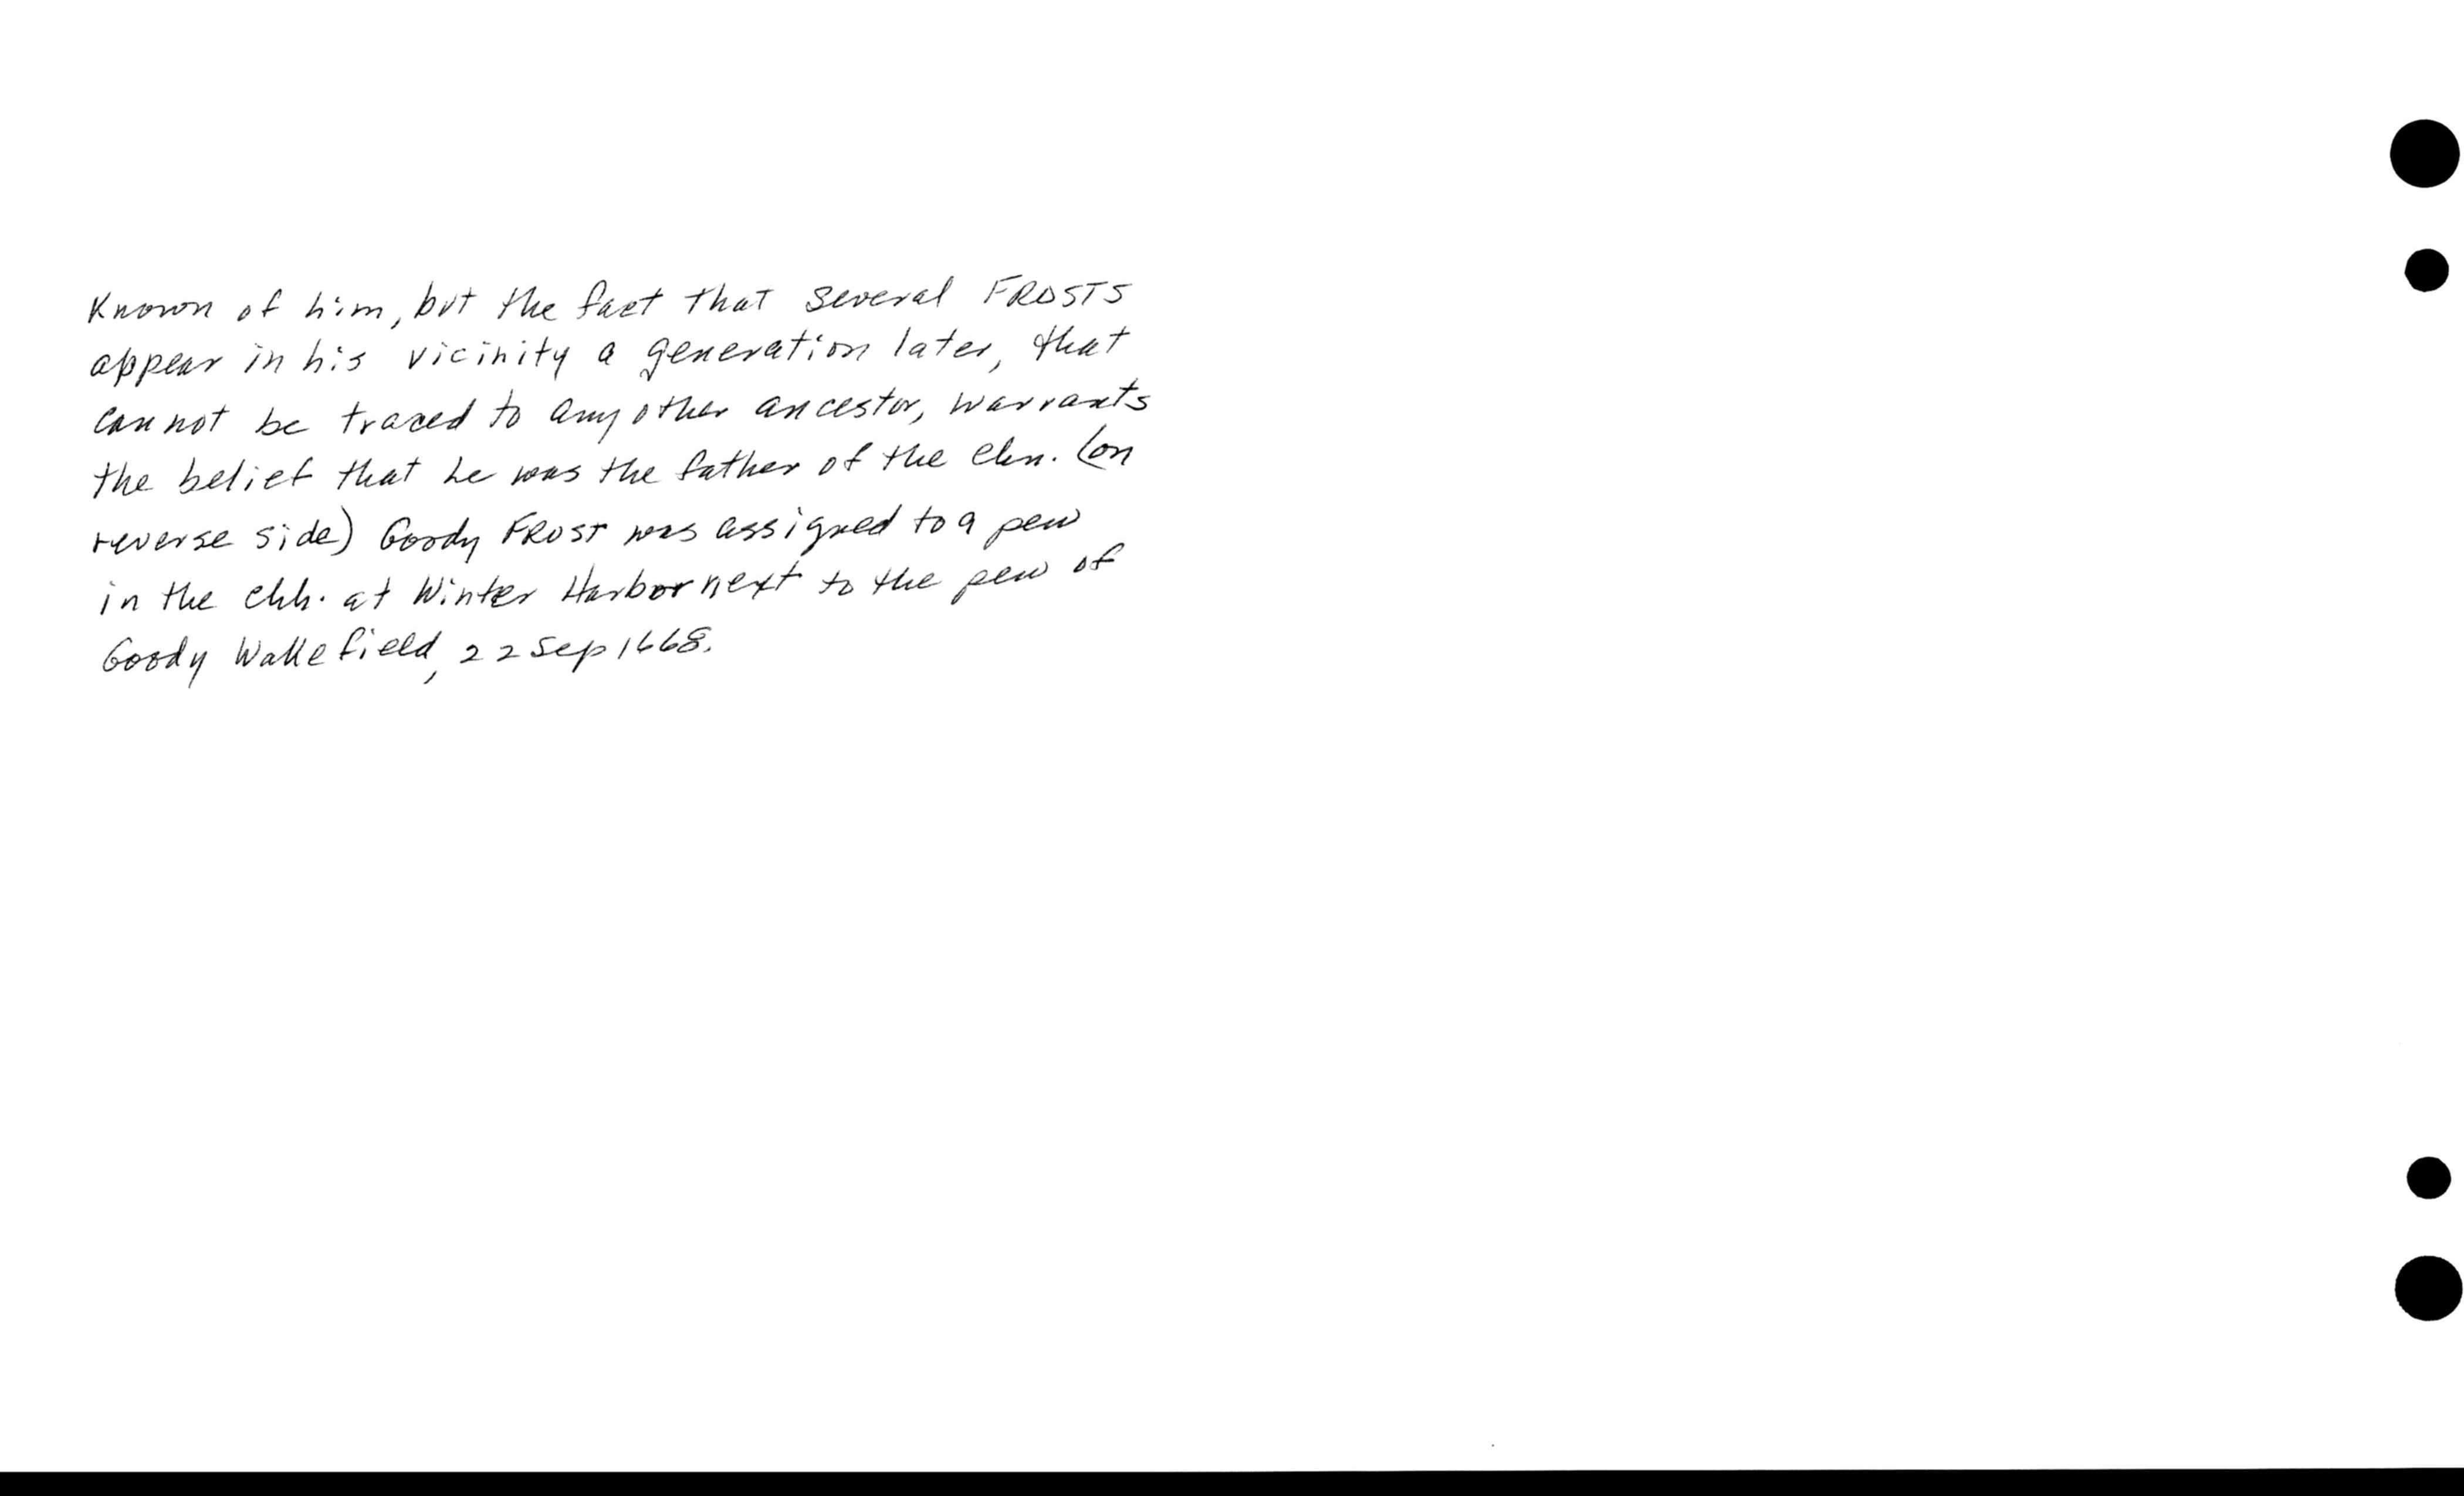 Known of him, but the fact that several FROSTS
appear in his vicinity a generation later, that
cannot be traced to any other ancestor, warrants
the belief that he was the father of the chn. (on
reverse side) Goody FROST was assigned to a pew
in the chh. at Winter Harbor next to the pew of
Goody Wakefield, 22 Sep 1668.